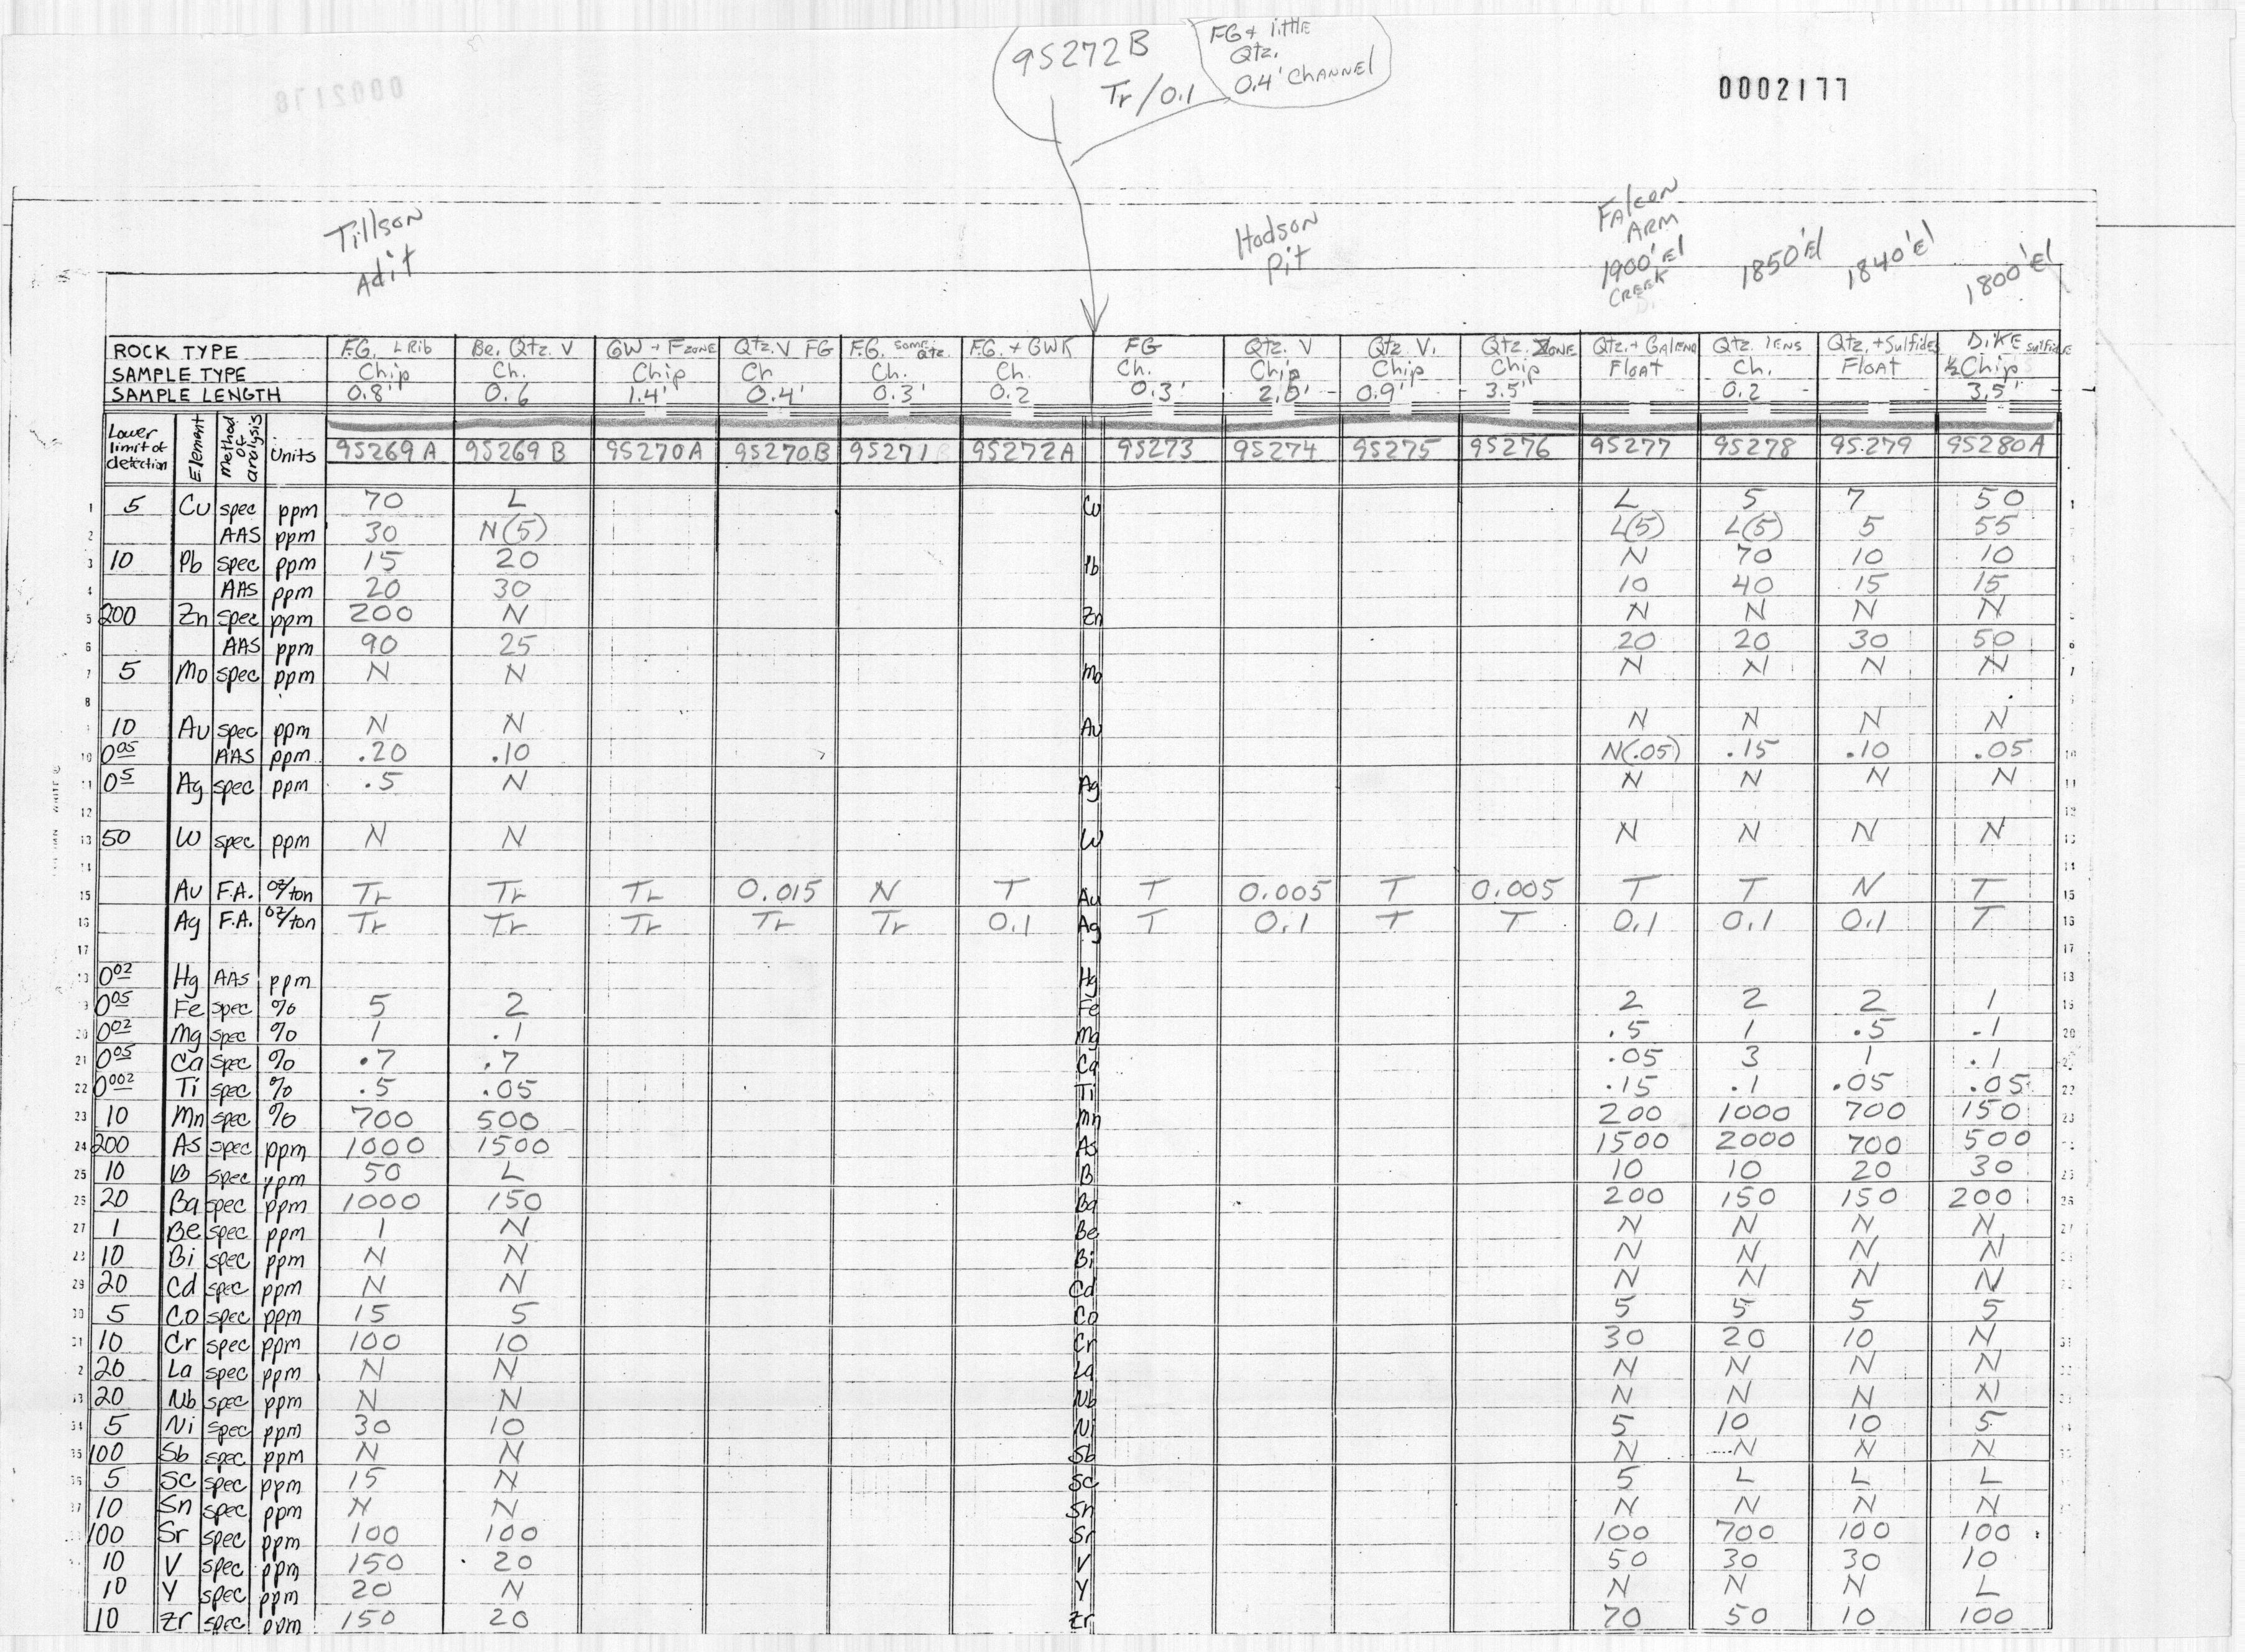 9S272B
Tr/0.1
FG + little
Qtz.
0.4' CHANNEL
0002177
0002178
Tillson
Adit
Hodson
pit
FAlcon
ARM
1900'El
CREEK
1850'El
1840'El
1800'El
ROCK TYPE F.G. L Rib Be. Qtz. V GW + F ZONE Qtz. V FG F.G. some Qtz. F.G. + GWK FG Qtz. V Qtz. V. Qtz. ZONE Qtz. + GAlENA Qtz. lENS Qtz. + Sulfides DiKE Sulfide
SAMPLE TYPE Chip Ch. Chip Ch Ch. Ch. Ch. Chip Chip Chip FloAT Ch. FloAT ½ Chip
SAMPLE LENGTH 0.8' 0.6 1.4' 0.4' 0.3' 0.2 0.3' 2.0' 0.9' 3.5' 0.2 3.5'
Lower limit of detection Element Method of analysis Units 9S269A 9S269B 9S270A 9S270B 9S271 9S272A 9S273 9S274 9S275 9S276 9S277 9S278 9S279 9S280A
1 5 Cu spec ppm 70 L Cu L 5 7 50 1
2 AAS ppm 30 N(5) L(5) L(5) 5 55
3 10 Pb spec ppm 15 20 Pb N 70 10 10
4 AAS ppm 20 30 10 40 15 15
5 200 Zn spec ppm 200 N Zn N N N N
6 AAS ppm 90 25 20 20 30 50
7 5 Mo spec ppm N N Mo N N N N
8
10 Au spec ppm N N Au N N N N
10 0.05 AAS ppm .20 .10 N(.05) .15 .10 .05 10
11 0.5 Ag spec ppm .5 N Ag N N N N 11
12 12
13 50 W spec ppm N N W N N N N 13
14 14
15 Au F.A. oz/ton Tr Tr Tr 0.015 N T Au T 0.005 T 0.005 T T N T 15
16 Ag F.A. oz/ton Tr Tr Tr Tr Tr 0.1 Ag T 0.1 T T 0.1 0.1 0.1 T 16
17 17
0.02 Hg AAS ppm Hg
0.05 Fe spec % 5 2 Fe 2 2 2 1 19
20 0.02 Mg spec % 1 .1 Mg .5 1 .5 .1 20
21 0.05 Ca spec % .7 .7 Ca .05 3 1 .1
22 0.002 Ti spec % .5 .05 Ti .15 .1 .05 .05 22
23 10 Mn spec % 700 500 Mn 200 1000 700 150
24 200 As spec ppm 1000 1500 As 1500 2000 700 500
25 10 B spec ppm 50 L B 10 10 20 30
26 20 Ba spec ppm 1000 150 Ba 200 150 150 200 26
27 1 Be spec ppm 1 N Be N N N N
10 Bi spec ppm N N Bi N N N N
29 20 Cd spec ppm N N Cd N N N N
30 5 Co spec ppm 15 5 Co 5 5 5 5
31 10 Cr spec ppm 100 10 Cr 30 20 10 N
20 La spec ppm N N La N N N N
20 Nb spec ppm N N Nb N N N N
34 5 Ni spec ppm 30 10 Ni 5 10 10 5
35 100 Sb spec ppm N N Sb N N N N
5 Sc spec ppm 15 N Sc 5 L L L
10 Sn spec ppm N N Sn N N N N
100 Sr spec ppm 100 100 Sr 100 700 100 100
10 V spec ppm 150 20 V 50 30 30 10
10 Y spec ppm 20 N Y N N N L
10 Zr spec ppm 150 20 Zr 70 50 10 100